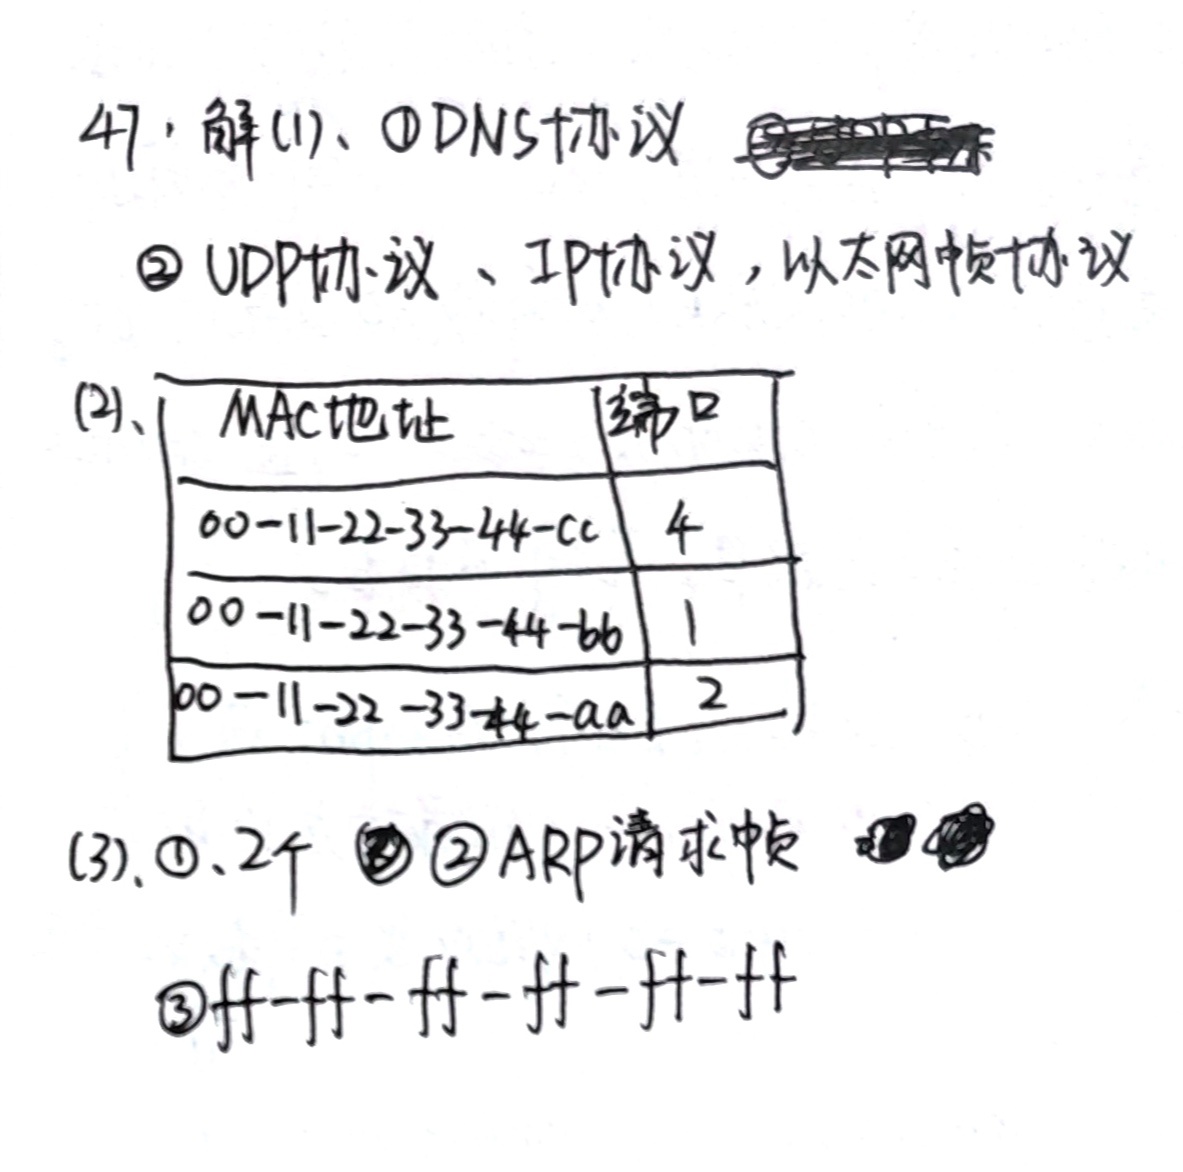 47. 解(1)、①DNS协议
②UDP协议、IP协议，以太网帧协议
(2)、MAC地址 端口
00-11-22-33-44-cc 4
00-11-22-33-44-bb 1
00-11-22-33-44-aa 2
(3)、①、2个 ②ARP请求帧
③ff-ff-ff-ff-ff-ff